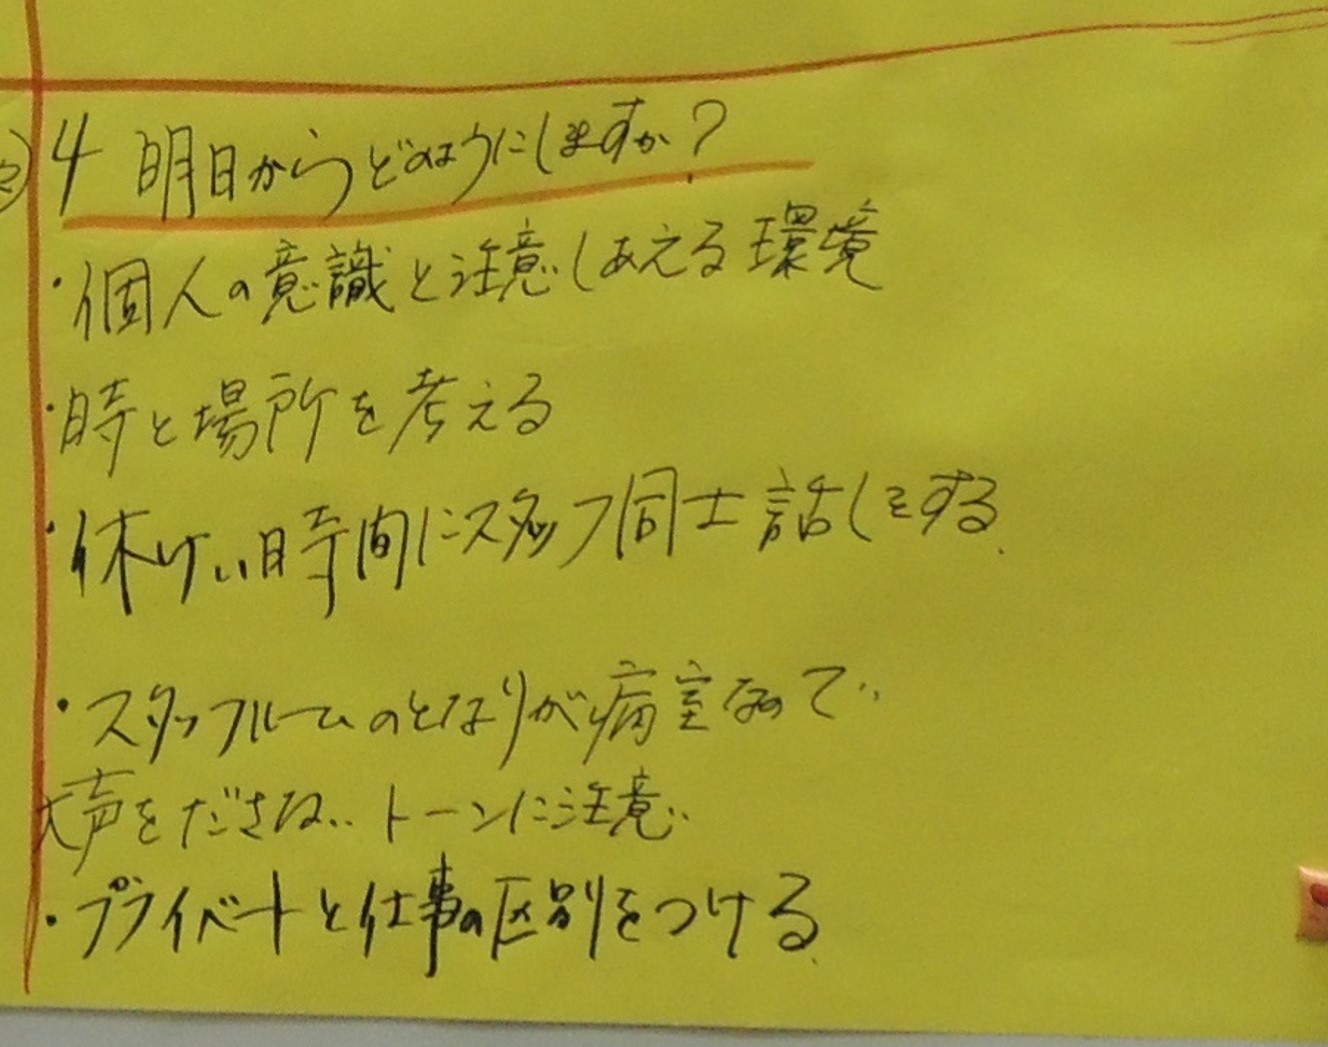 4 明日からどのようにしますか?
・個人の意識と注意しあえる環境
・時と場所を考える
・休けい時間にスタッフ同士話しをする。
・スタッフルームのとなりが病室なので
大声をださない。トーンに注意。
・プライベートと仕事の区別をつける。